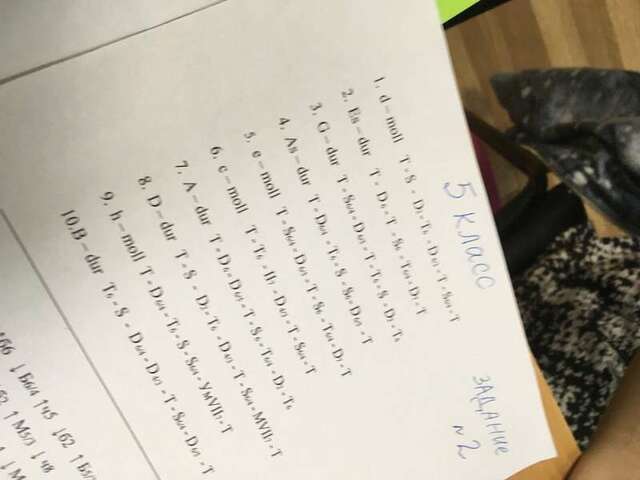 5 класс
ЗАДАНИЕ
№2
1. d – moll T - S - D₇ - T₆ - D₆/₅ - T - S₆/₄ - T
2. Es – dur T - D₆ - T - S₆ - T₆/₄ - D₇ - T
3. G – dur T - S₆/₄ - D₆/₅ - T - T₆ - S - D₇ - T₆
4. As – dur T - D₆/₄ - T₆ - S - S₆ - D₆/₅ - T
5. e – moll T - S₆/₄ - D₆/₅ - T - S₆ - T₆/₄ - D₇ - T
6. c – moll T - T₆ - II₇ - D₄/₃ - T - S₆/₄ - T
7. A – dur T - D₆ - D₆/₅ - T - S₆ - T₆/₄ - D₇ - T₆
8. D – dur T - S - D₂ - T₆ - D₄/₃ - T - S₆/₄ - MVII₇ - T
9. h – moll T - D₆/₄ - T₆ - S - S₆/₄ - УмVII₇ - T
10.B – dur T₆ - S - D₆/₄ - D₄/₃ - T - S₆/₄ - D₆/₅ - T
Б6 ↓ Б6/4 ↑ч5 ↓б2 ↑
↑ М5/3 ↓ ч8